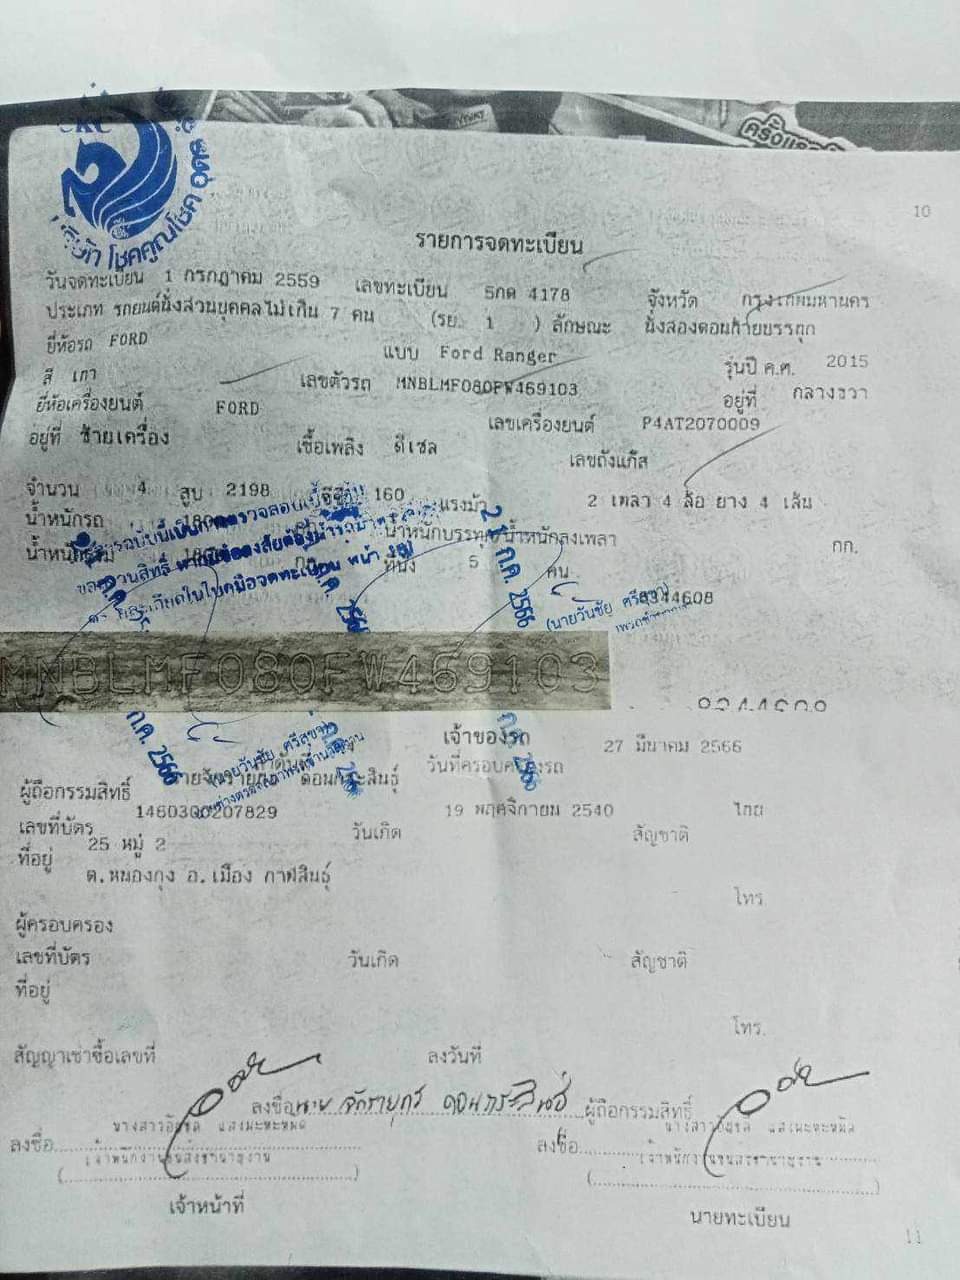 ครั้งแรก
บริษัท โชคคูณโชค อุดร
10
รายการจดทะเบียน
วันจดทะเบียน 1 กรกฎาคม 2559 เลขทะเบียน 5กด 4178 จังหวัด กรุงเทพมหานคร
ประเภท รถยนต์นั่งส่วนบุคคลไม่เกิน 7 คน (รย. 1 ) ลักษณะ นั่งสองตอนท้ายบรรทุก
ยี่ห้อรถ FORD แบบ Ford Ranger รุ่นปี ค.ศ. 2015
สี เทา เลขตัวรถ MNBLMF080FW469103 อยู่ที่ กลางขวา
ยี่ห้อเครื่องยนต์ FORD เลขเครื่องยนต์ P4AT2070009
อยู่ที่ ซ้ายเครื่อง เชื้อเพลิง ดีเซล เลขถังแก๊ส
จำนวน 4 สูบ 2198 ซีซี 160 แรงม้า 2 เพลา 4 ล้อ ยาง 4 เส้น
น้ำหนักรถ น้ำหนักบรรทุก/น้ำหนักลงเพลา กก.
น้ำหนักรวม กก. ที่นั่ง 5 คน
8344608
21 ก.ค. 2566
(นายวันชัย ศรีสุขา)
MNBLMF080FW469103
8344608
ก.ค. 2566
เจ้าของรถ
27 มีนาคม 2566
วันที่ครอบครองรถ
(นายวันชัย ศรีสุขา)
ผู้ถือกรรมสิทธิ์ ดอนกระสินธุ์
เลขที่บัตร 1460300207829 วันเกิด 19 พฤศจิกายน 2540 สัญชาติ ไทย
ที่อยู่ 25 หมู่ 2
ต.หนองกุง อ.เมือง กาฬสินธุ์
โทร.
ผู้ครอบครอง
เลขที่บัตร วันเกิด สัญชาติ
ที่อยู่
โทร.
สัญญาเช่าซื้อเลขที่ ลงวันที่
ลงชื่อ ดอนกระสินธุ์ ผู้ถือกรรมสิทธิ์
ลงชื่อ ลงชื่อ
เจ้าพนักงานขนส่งชำนาญงาน เจ้าพนักงานขนส่งชำนาญงาน
เจ้าหน้าที่ นายทะเบียน
11